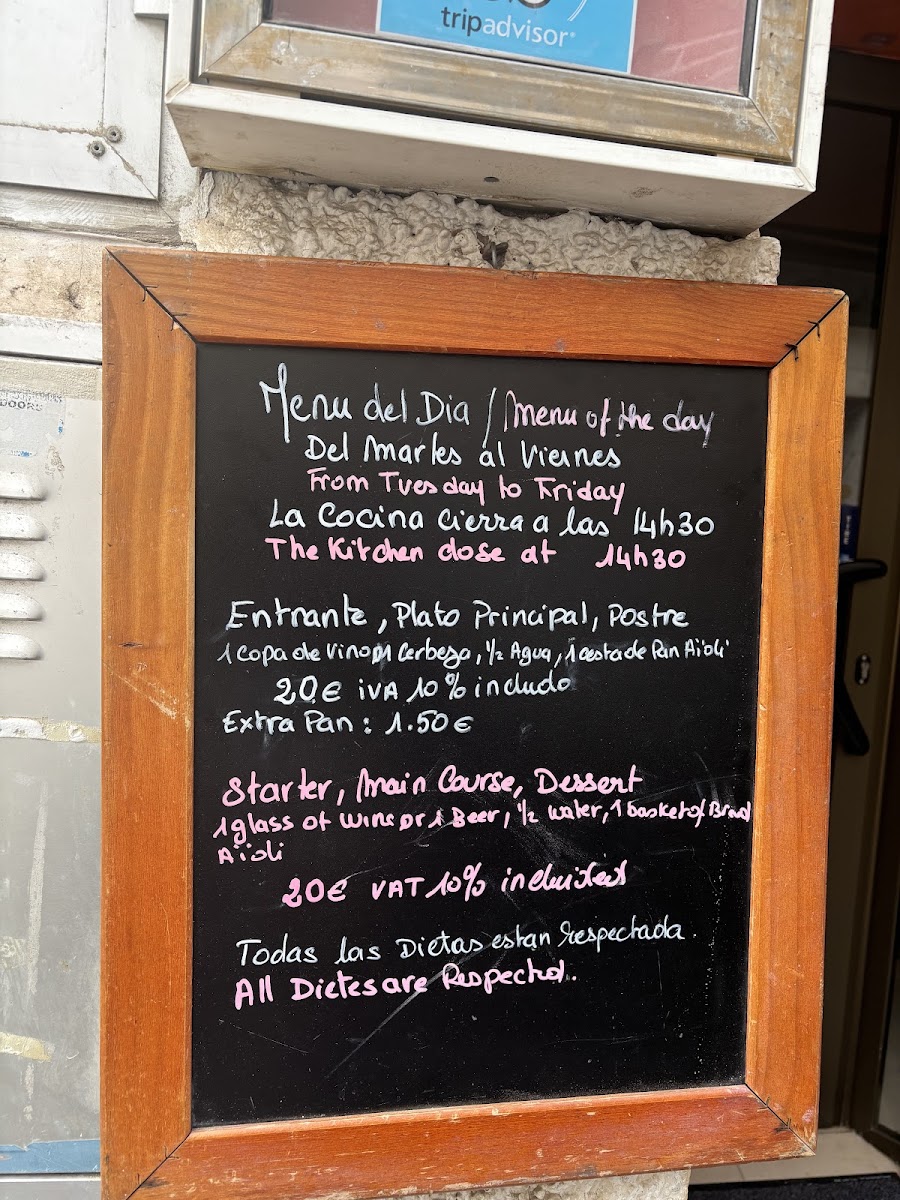 tripadvisor®
DOORS
Menu del Dia / Menu of the day
Del Martes al Viernes
From Tuesday to Friday
La Cocina cierra a las 14h30
The Kitchen close at 14h30
Entrante, Plato Principal, Postre
1 Copa de Vino 1 Cerbeza, ½ Agua, 1 cesta de Pan Aïoli
20€ iVA 10% includo
Extra Pan: 1.50€
Starter, Main Course, Dessert
1 glass of wine or 1 Beer, ½ water, 1 basket of Bread
Aïoli
20€ VAT 10% included
Todas las Dietas estan respectada.
All Dietes are Respected.